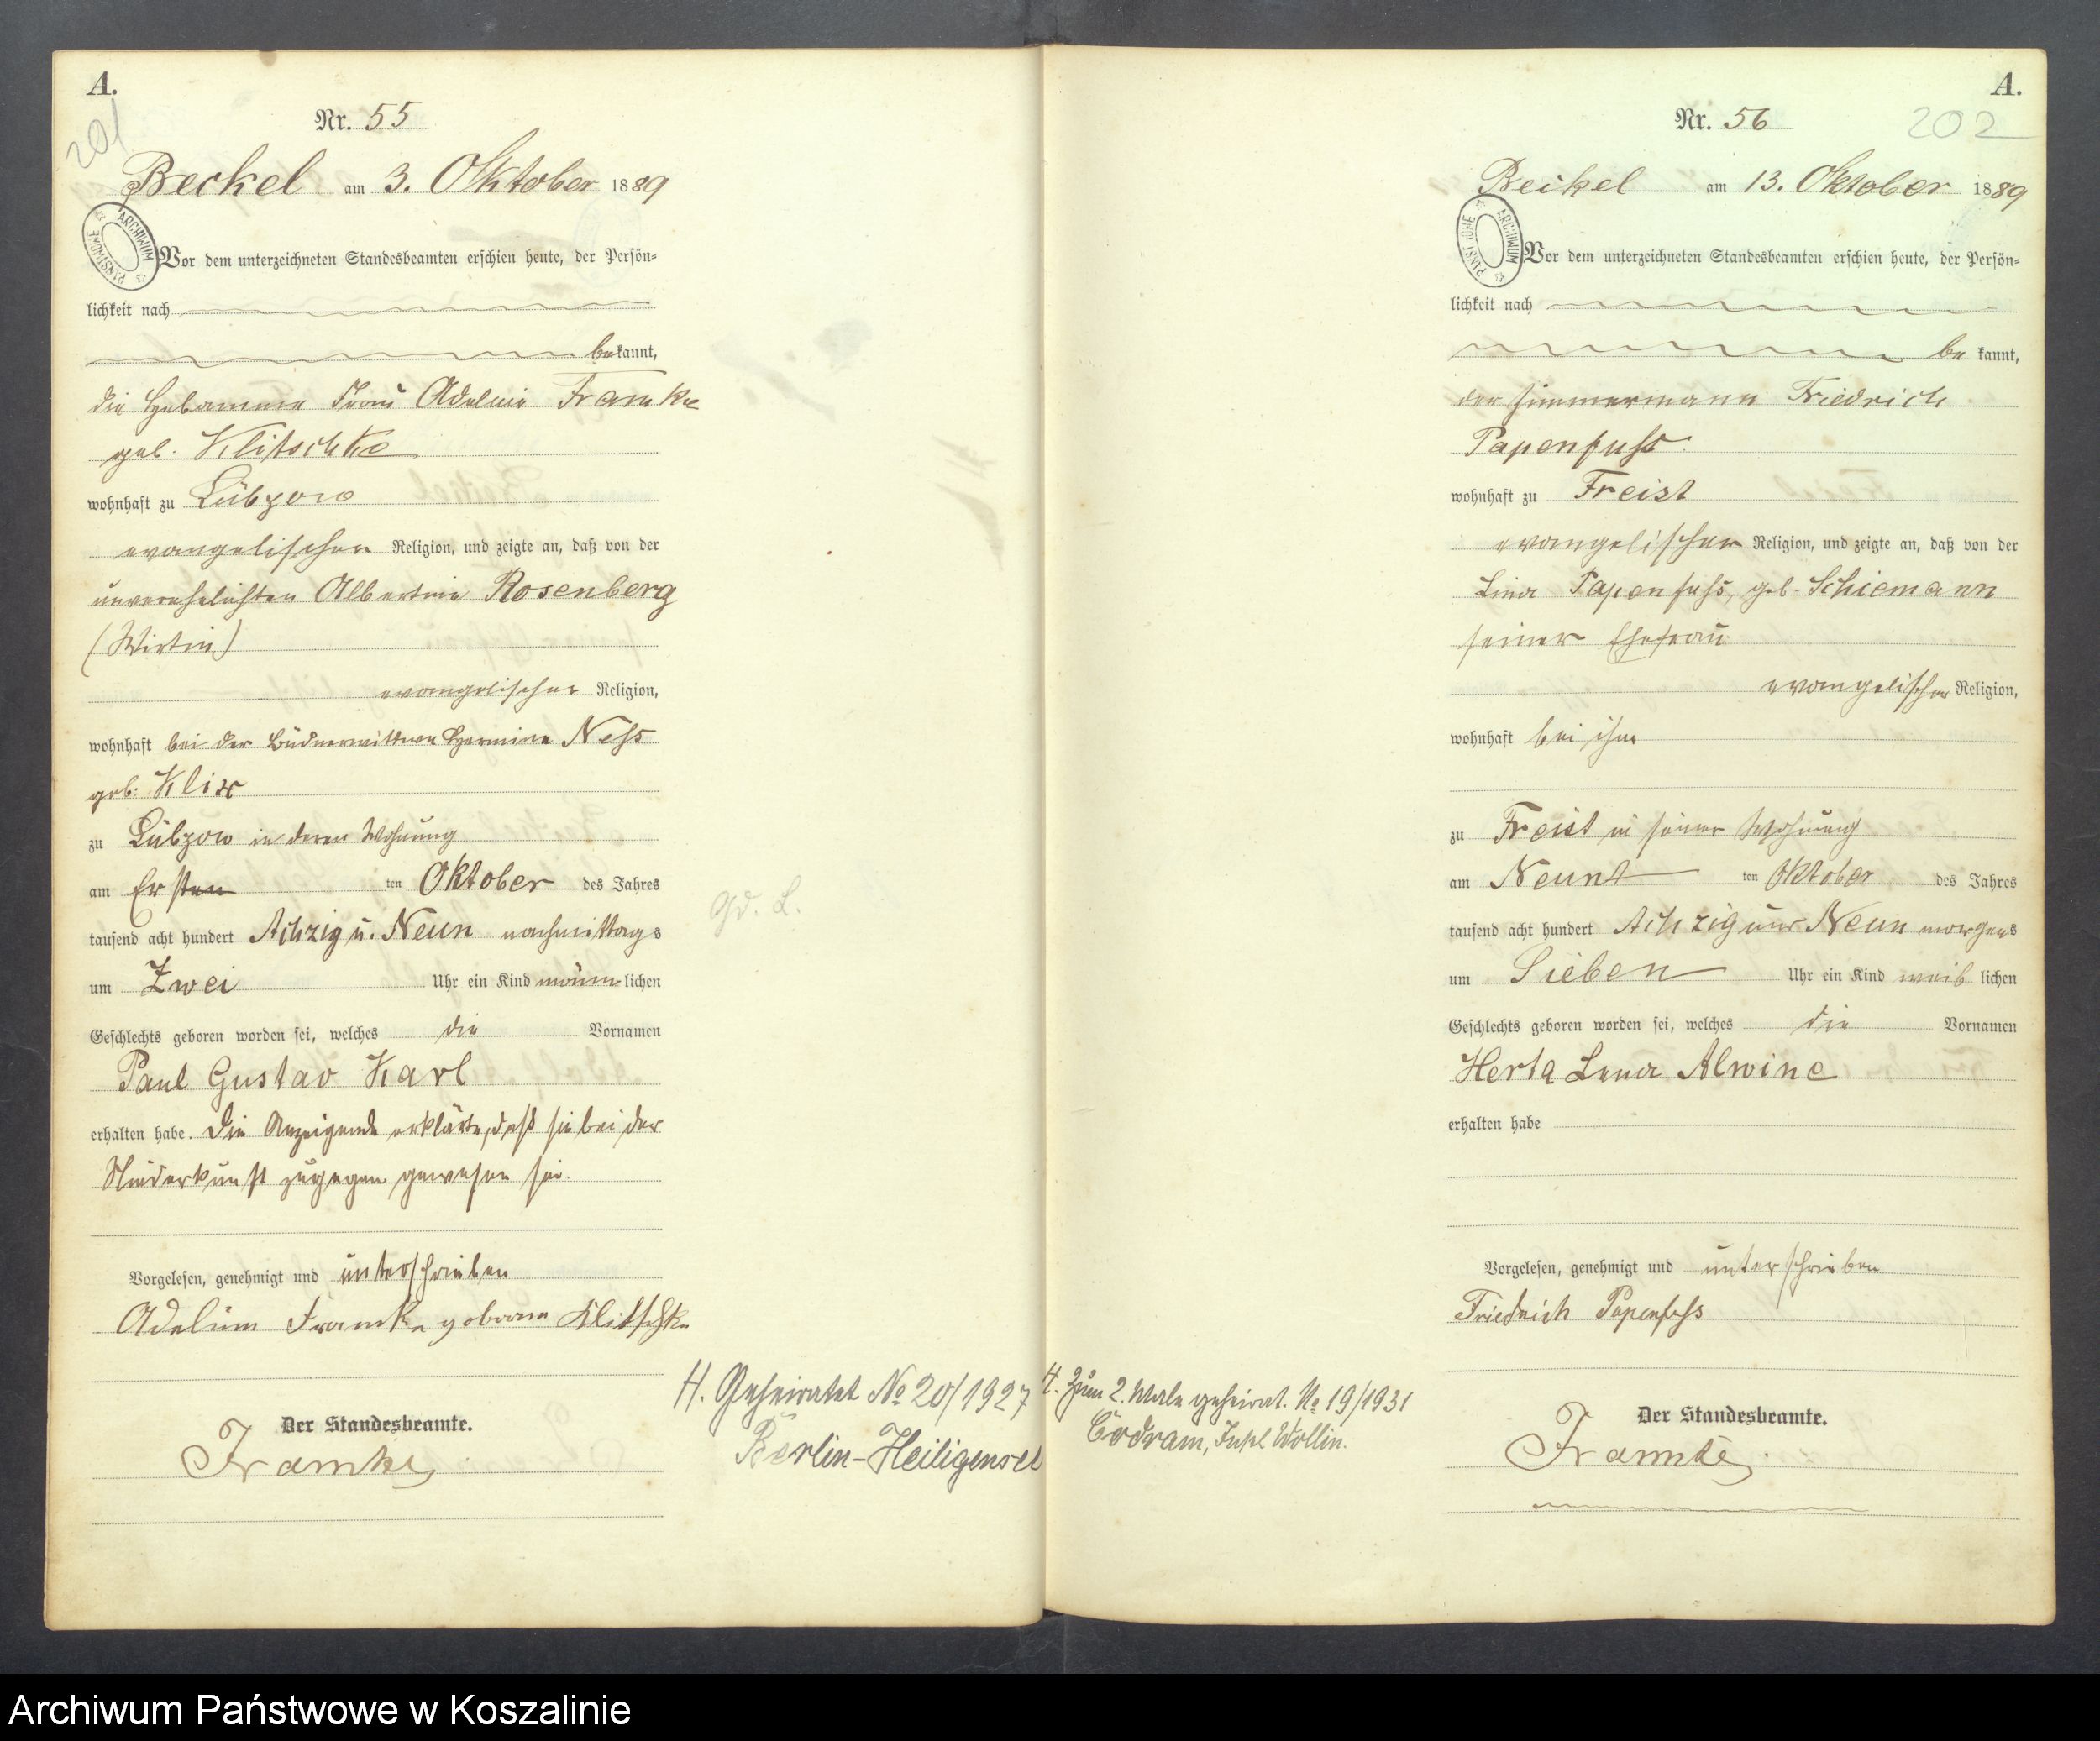 A.
201
Nr. 55
Beckel am 3. Oktober 1889
ARCHIWUM PAŃSTWOWE
Vor dem unterzeichneten Standesbeamten erschien heute, der Persön-
lichkeit nach
bekannt,
die Hebamme Frau Adeline Framke
geb. Klitschke
wohnhaft zu Lübzow
evangelischer Religion, und zeigte an, daß von der
unverehelichten Albertine Rosenberg
(Wirtin)
evangelischer Religion,
wohnhaft bei der Büdnerwittwe Hermine Neſs
geb: Klix
zu Lübzow in deren Wohnung
am Ersten ten Oktober des Jahres
tausend acht hundert Achzig u. Neun nachmittags
um Zwei Uhr ein Kind männlichen
Geschlechts geboren worden sei, welches die Vornamen
Paul Gustav Karl
erhalten habe. Die Anzeigende erklärte, daß sie bei der
Niederkunft zugegen gewesen sei.
Vorgelesen, genehmigt und unterschrieben
Adeline Framke geborene Klitschke
Der Standesbeamte.
Framke
gd. L.
H. Geheiratet No 20/1927
Berlin-Heiligensee
A.
202
Nr. 56
Beckel am 13. Oktober 1889
ARCHIWUM PAŃSTWOWE
Vor dem unterzeichneten Standesbeamten erschien heute, der Persön-
lichkeit nach
bekannt,
der Zimmermann Friedrich
Papenfuſs
wohnhaft zu Freist
evangelischer Religion, und zeigte an, daß von der
Lina Papenfuſs, geb. Schiemann
seiner Ehefrau
evangelischer Religion,
wohnhaft bei ihm
zu Freist in seiner Wohnung
am Neunt ten Oktober des Jahres
tausend acht hundert Achzig und Neun morgens
um Sieben Uhr ein Kind weiblichen
Geschlechts geboren worden sei, welches die Vornamen
Herta Lena Alwine
erhalten habe
Vorgelesen, genehmigt und unterschrieben
Friedrich Papenfuſs
Der Standesbeamte.
Framke
H. Zum 2. Male geheirat. No 19/1931
Codram, Insel Wollin.
Archiwum Państwowe w Koszalinie